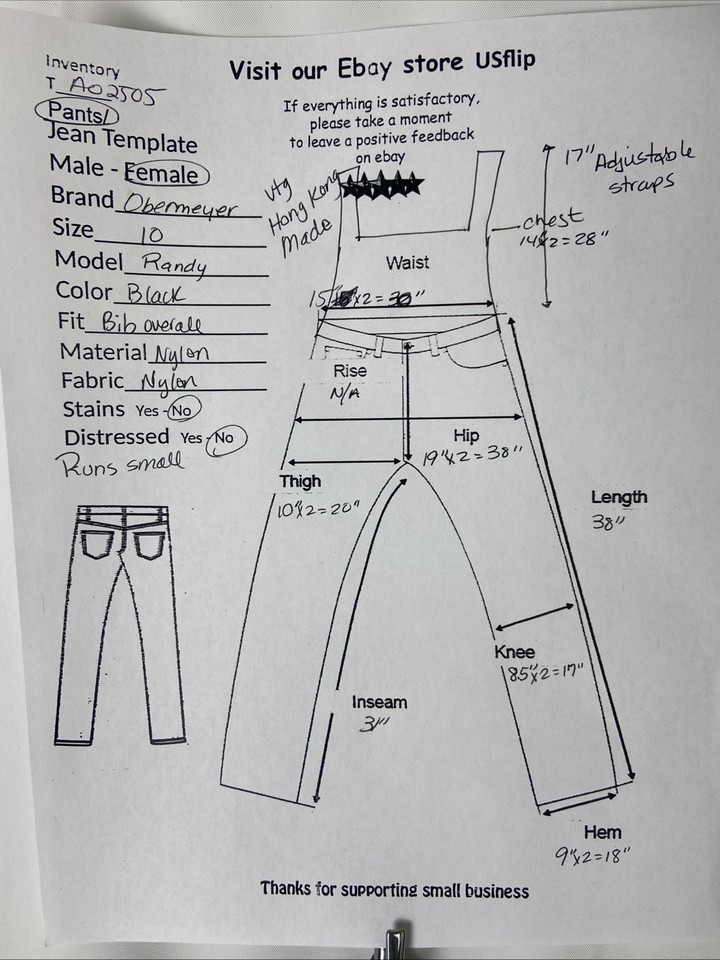 Visit our Ebay store USflip
Inventory
T A02505
Pants/
Jean Template
Male - Female
Brand Obermeyer
Size 10
Model Randy
Color Black
Fit Bib overall
Material Nylon
Fabric Nylon
Stains Yes - No
Distressed Yes - No
Runs small
If everything is satisfactory,
please take a moment
to leave a positive feedback
on ebay
Vtg
Hong Kong
Made
17" Adjustable
straps
chest
14"x2=28"
Waist
15"x2=30"
Rise
N/A
Hip
19"x2=38"
Thigh
10"x2=20"
Length
38"
Knee
8.5"x2=17"
Inseam
31"
Hem
9"x2=18"
Thanks for supporting small business